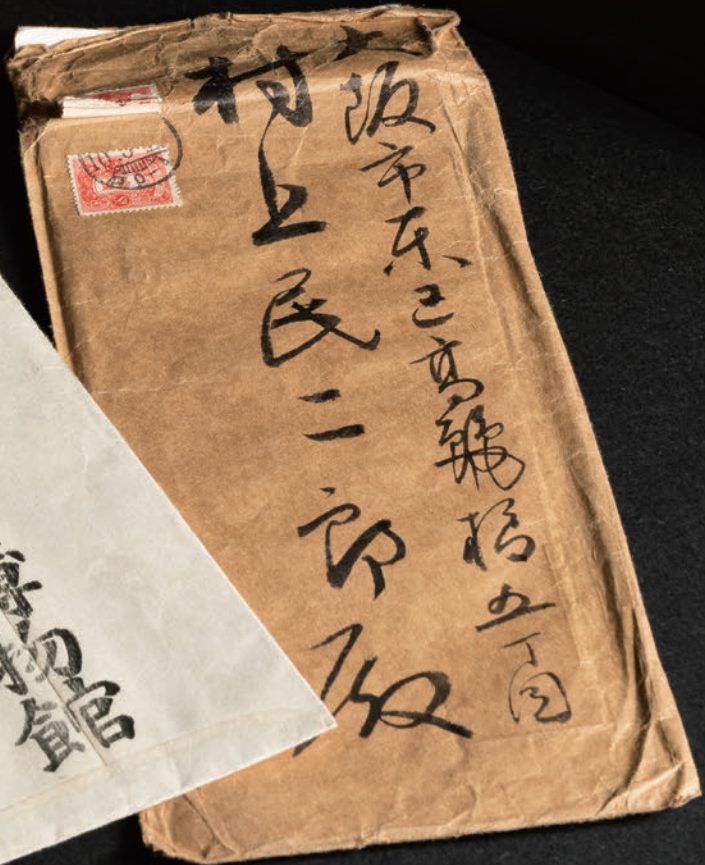 大阪市東区高麗橋五丁目
村上民二郎殿
博物館